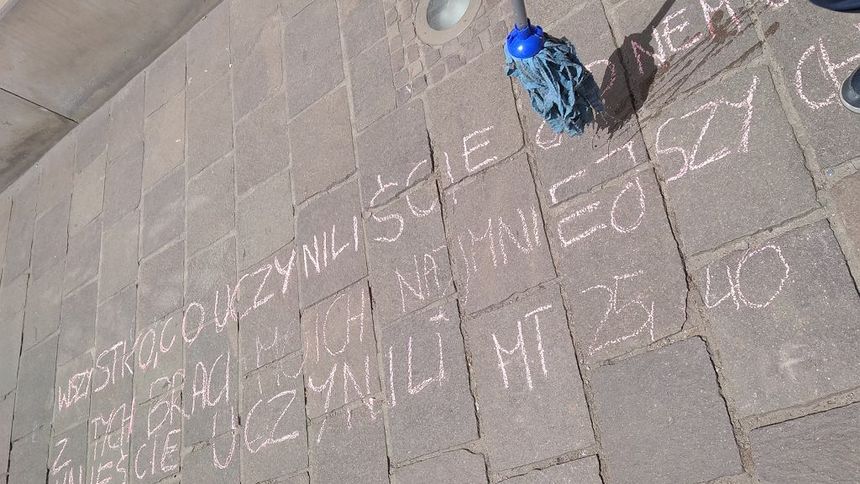 WSZYSTKO, CO UCZYNILIŚCIE
Z TYCH BRACI MOICH NAJMNIEJSZYCH
MNIEŚCIE UCZYNILI MT 25, 40